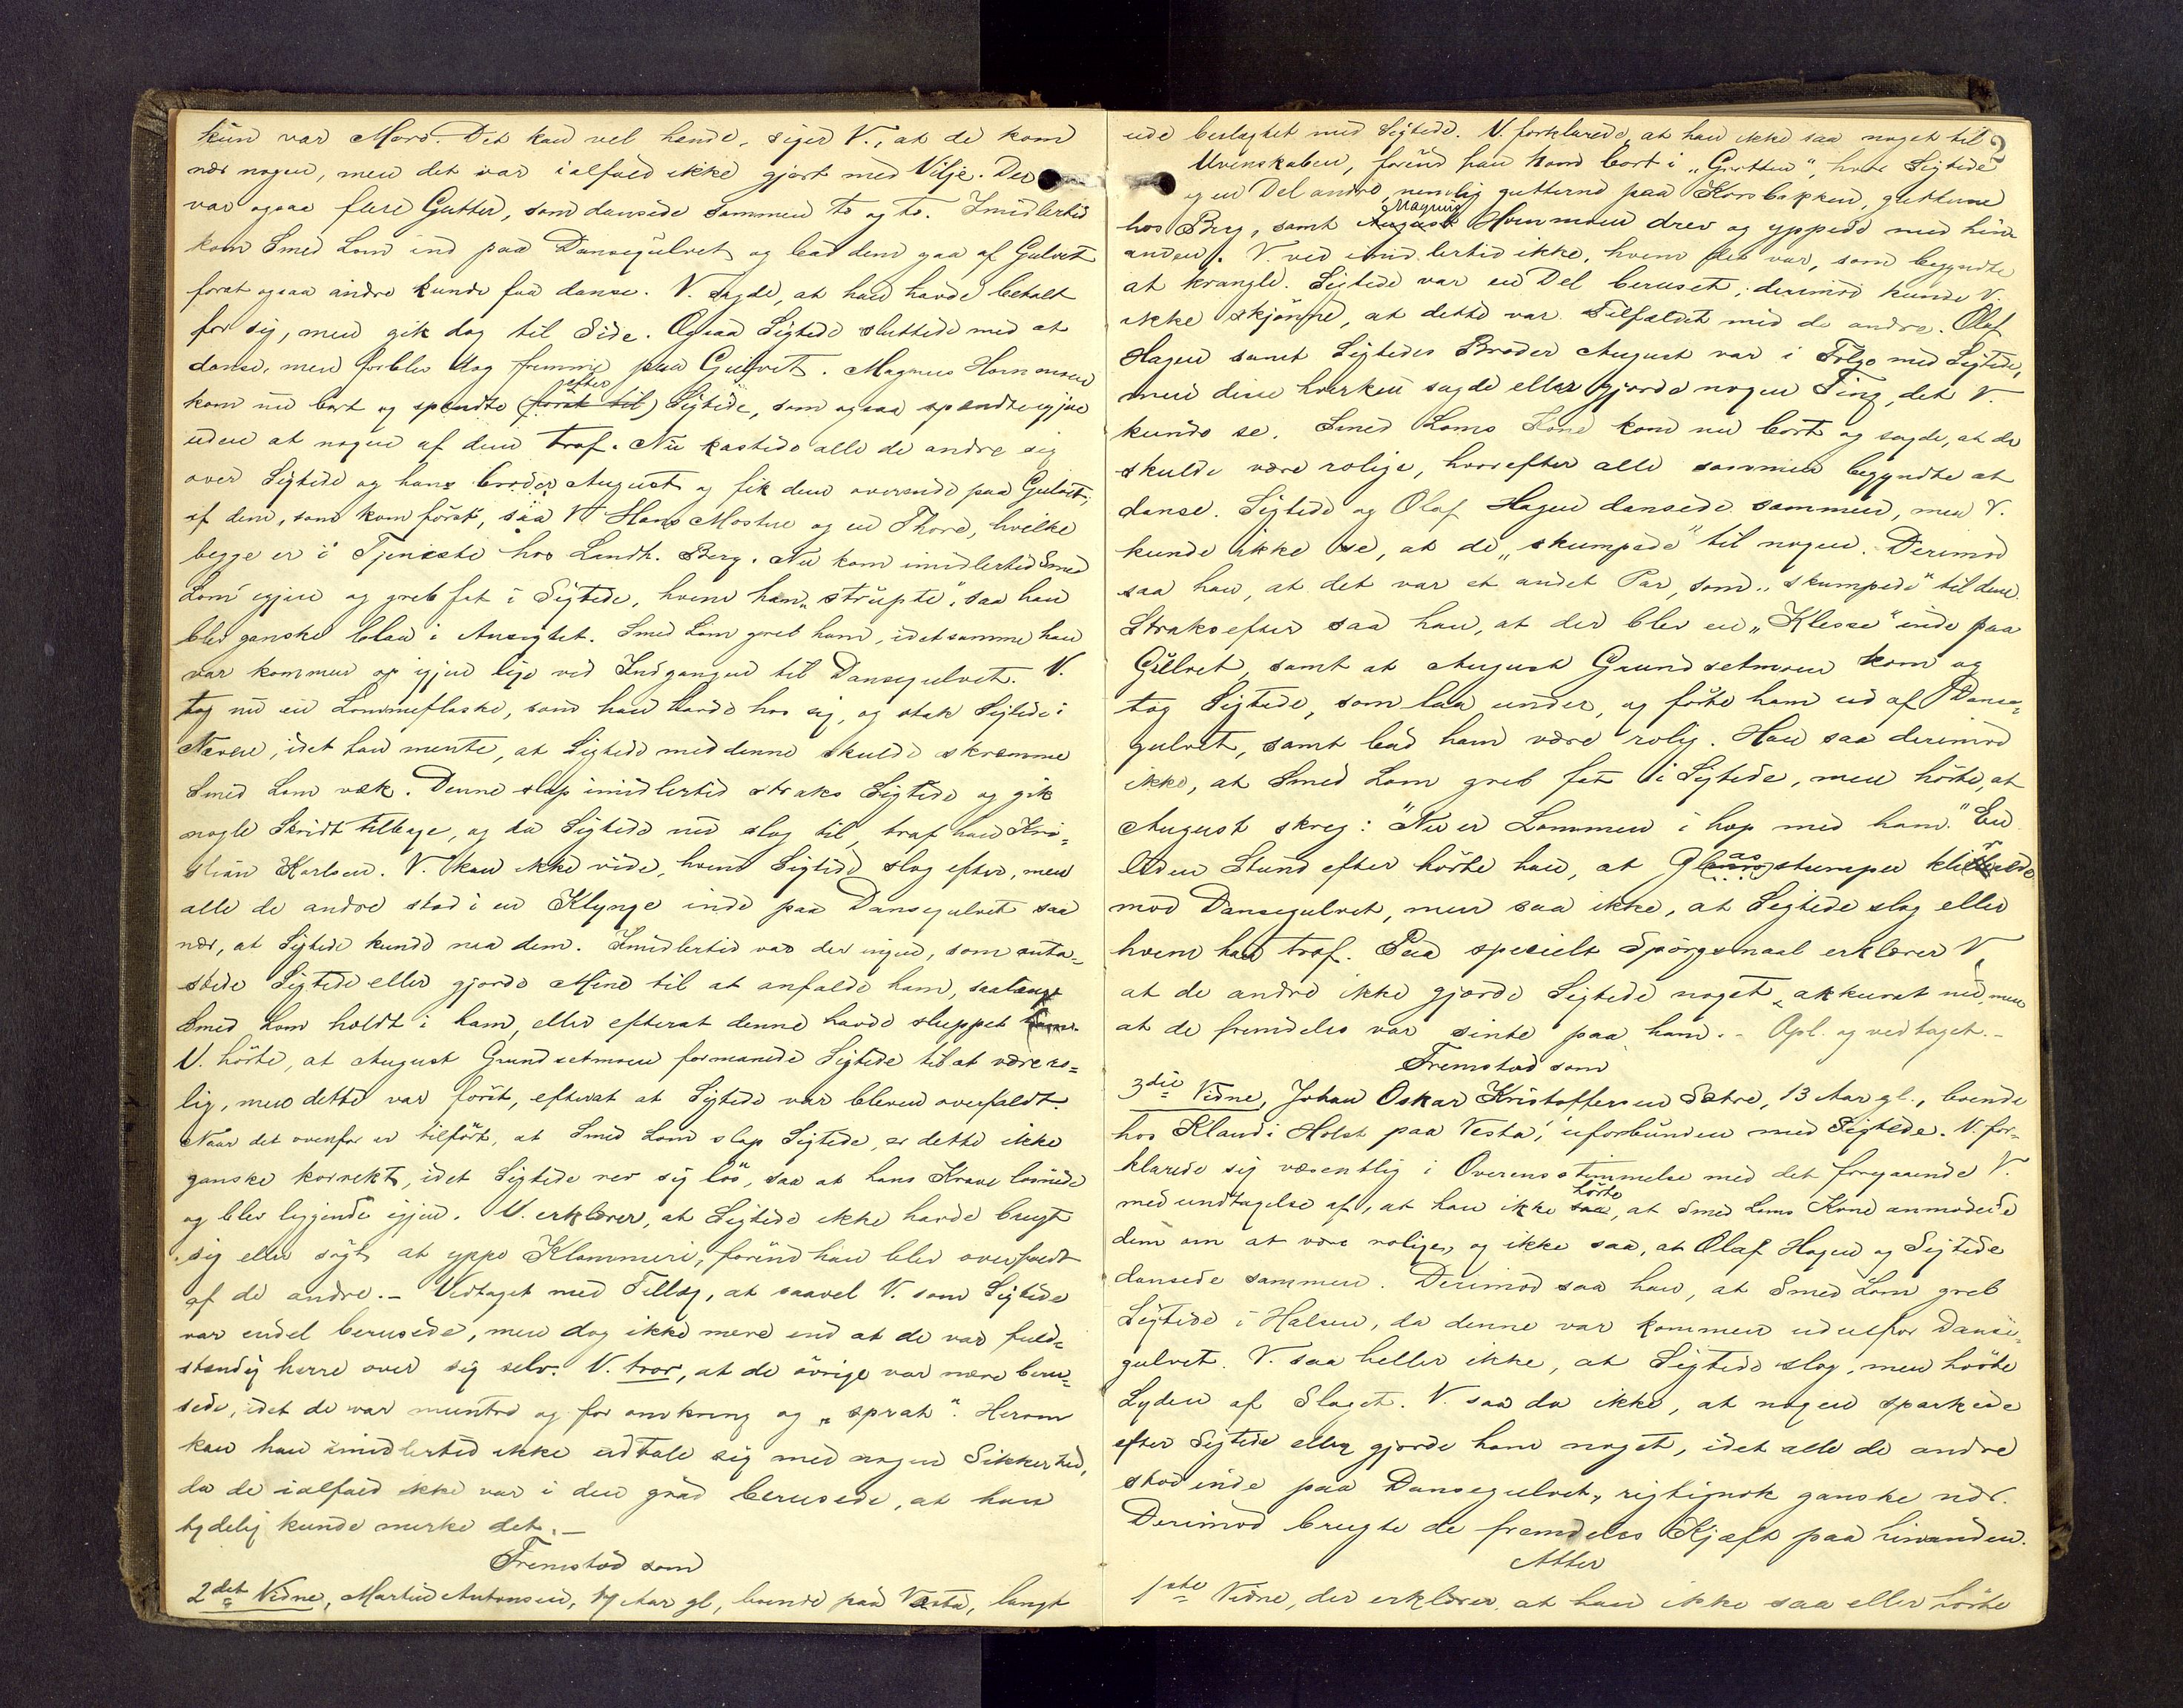 kun var Moro. Det kan vel hende, siger V., at de kom
nær nogen, men det var ialfald ikke gjort med Vilje. Der
var ogsaa flere Gutter, som dansede sammen to og to. Imidlertid
kom Smed Lom ind paa Dansegulvet og bad dem gaa af Gulvet
forat ogsaa andre kunde faa danse. V. sagde, at han havde betalt
for sig, men gik dog til Side. Ogsaa Sigtede sluttede med at
danse, men forblev dog fremme paa Gulvet. Magnus Hornmoen
kom nu bort og spændte (først til) efter Sigtede, som ogsaa spændte igjen
uden at nogen af dem traf. Nu kastede alle de andre sig
over Sigtede og hans broder August og fik dem overende paa Gulvet;
af dem, som kom först, saa V. Hans Mostue og en Thore, hvilke
begge er i Tjeneste hos Lendh. Berg. Nu kom imidlertid Smed
Lom igjen og greb fat i Sigtede, hvem han „strüpte“, saa han
blev ganske blaa i Ansigtet. Smed Lom greb ham, idetsamme han
var kommen op igjen lige ved Indgangen til Dansegulvet. V.
tog nu en Lommeflaske, som han havde hos sig, og stak Sigtede i
Næven, idet han mente, at Sigtede med denne skulde skræmme
Smed Lom væk. Denne slap imidlertid straks Sigtede og gik
nogle Skridt tilbage, og da Sigtede nu slog til, traf han Kri-
stian Karlsen. V. kan ikke vide, hvem Sigtede slog efter, men
alle de andre stod i en Klynge inde paa Dansegulvet saa
nær, at Sigtede kunde naa dem. Imidlertid var der ingen, som anta-
stede Sigtede eller gjorde Mine til at anfalde ham, saalænge
Smed Lom holdt i ham, eller efterat denne havde sluppet ham.
V. hörte, at August Grundsetmoen formanede Sigtede til at være ro-
lig, men dette var först, efterat at Sigtede var bleven overfaldt.
Naar det ovenfor er tilfört, at Smed Lom slap Sigtede, er dette ikke
ganske korrekt, idet Sigtede rev sig lös, saa at hans Krave losnede
og blev liggende igjen. V. erklærer, at Sigtede ikke havde brugt
sig eller sögt at yppe Klammeri, förend han blev overfaldt
af de andre. – Vedtaget med Tillæg, at saavel V. som Sigtede
var endel berusede, men dog ikke mere end at de var fuld-
stændig herre over sig selv. V. tror, at de övrige var mere beru-
sede, idet de var muntre og for omkring og „sprat“. Herom
kan han imidlertid ikke udtale sig med nogen Sikkerhed,
da de ialfald ikke var i den grad berusede, at han
tydelig kunde merke det. –
Fremstod som
2det Vidne, Martin Antonsen, 17 Aar gl, boende paa Vesta, langt
2
ude beslægtet med Sigtede. V. forklarede, at han ikke saa noget til
Uvenskaben, förend han kom bort i „Grotten“, hvor Sigtede
og en Del andre, nemlig gutterne paa Korsbakken, gutterne
hos Berg, samt August Magnus Hornmoen drev og yppede med hin-
anden. V. ved imidlertid ikke, hvem det var, som begyndte
at krangle. Sigtede var en Del beruset; derimod kunde V.
ikke skjönne, at dette var Tilfældet med de andre. Olaf
Hagen samt Sigtedes Broder August var i Fölge med Sigtede,
men disse hverken sagde eller gjorde nogen Ting, det V.
kunde se. Smed Loms Kone kom nu bort og sagde, at de
skulde være rolige, hvorefter alle sammen begyndte at
danse. Sigtede og Olaf Hagen dansede sammen, men V.
kunde ikke se, at de „skumpede“ til nogen. Derimod
saa han, at det var et andet Par, som „skumpede“ til dem.
Straks efter saa han, at der blev en „Klesse“ inde paa
Gulvet, samt at August Grundsetmoen kom og
tog Sigtede, som laa under, og förte ham ud af Danse-
gulvet, samt bad ham være rolig. Han saa derimod
ikke, at Smed Lom greb fat i Sigtede, men hörte, at
August skreg: "Nu er Lommen i hop med ham." En
liden Stund efter hörte han, at Glasstumper klirrede
mod Dansegulvet, men saa ikke, at Sigtede slog eller
hvem han traf. Paa specielt Spörgsmaal erklærer V,
at de andre ikke gjorde Sigtede noget „akkurat nu“, men
at de fremdeles var sinte paa ham. – Opl. og vedtaget. –
Fremstod som
3die Vidne, Johan Oskar Kristoffersen Sætre, 13 Aar gl., boende
hos Klaudi Holst paa Vesta, uforbunden med Sigtede. V. for-
klarede sig væsentlig i Overensstemmelse med det foregaaende V.
med undtagelse af, at han ikke saa hörte, at Smed Loms Kone anmodede
dem om at være rolige, og ikke saa, at Olaf Hagen og Sigtede
dansede sammen. Derimod saa han, at Smed Lom greb
Sigtede i Halsen, da denne var kommen udenfor Danse-
gulvet. V. saa heller ikke, at Sigtede slog, men hörte
Lyden af Slaget. V. saa da ikke, at nogen sparkede
efter Sigtede eller gjorde ham noget, idet alle de andre
stod inde paa Dansegulvet, rigtignok ganske nær.
Derimod brugte de fremdeles Kjæft paa hinanden.
Atter
1ste Vidne, der erklærer, at han ikke saa eller hörte